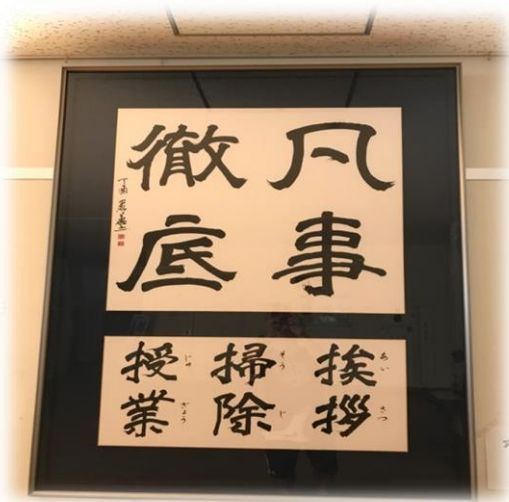 凡事
徹底
丁酉
挨拶
あいさつ
掃除
そうじ
授業
じゅぎょう